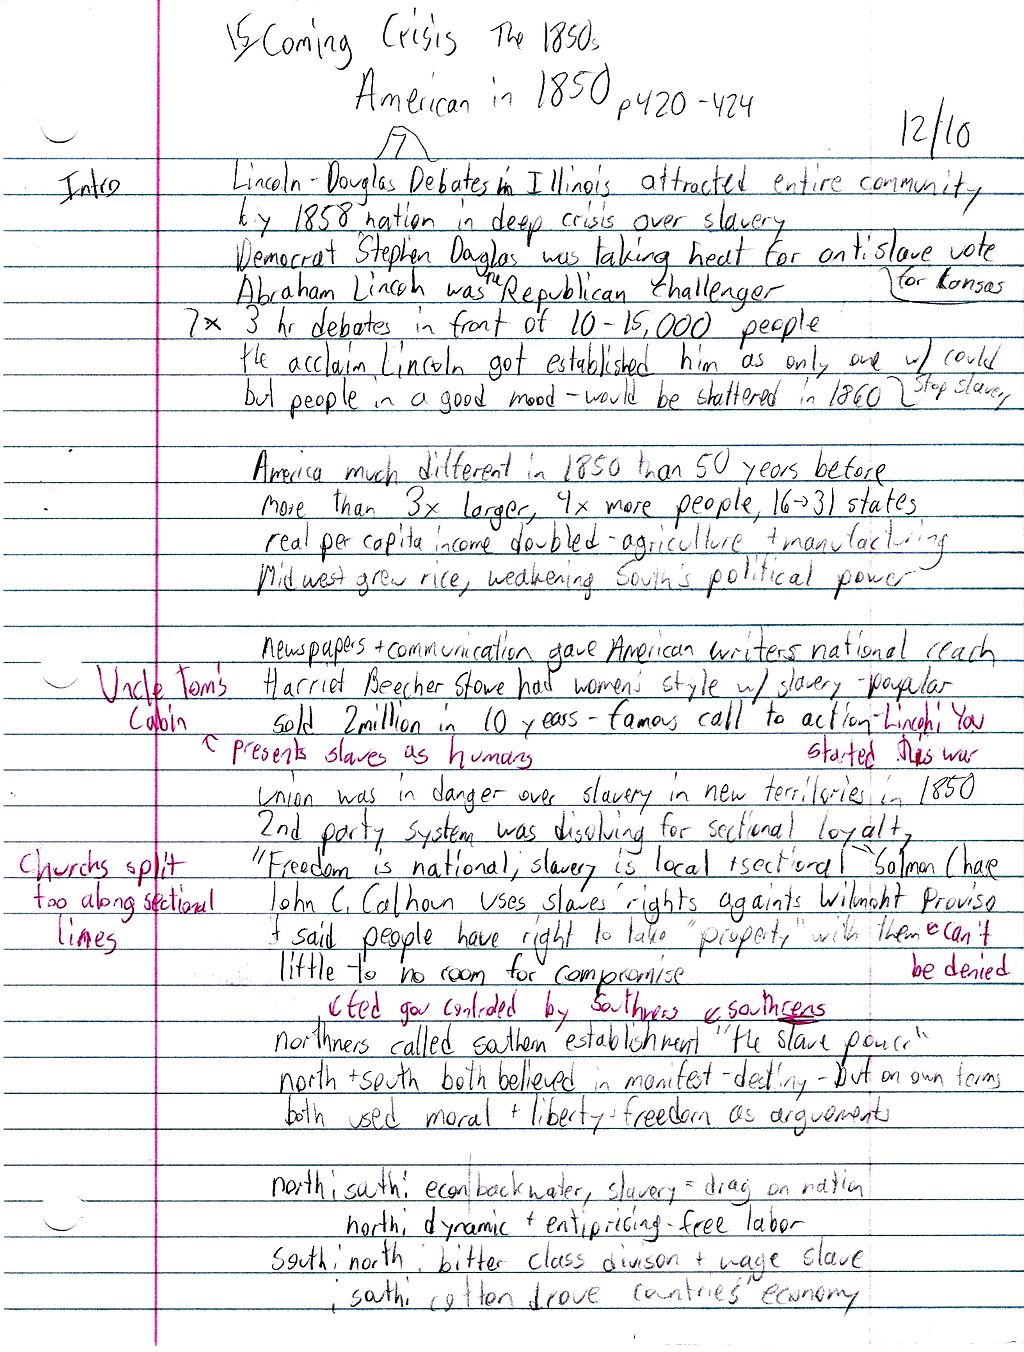 15 Coming Crisis The 1850s
American in 1850 p420-424
12/10
7
Intro
Lincoln-Douglas Debates in Illinois attracted entire community
by 1858 nation in deep crisis over slavery
Democrat Stephen Douglas was taking heat for antislave vote
for Kansas
Abraham Lincoln was the Republican challenger
7x 3 hr debates in front of 10-15,000 people
the acclaim Lincoln got established him as only one w/ could
stop slavery
but people in a good mood - would be shattered in 1860
America much different in 1850 than 50 years before
more than 3x larger, 4x more people, 16→31 states
real per capita income doubled - agriculture + manufacturing
Midwest grew rice, weakening South's political power
newspapers + communication gave American writers national reach
Uncle Tom's
Cabin
Harriet Beecher Stowe had women's style w/ slavery - popular
sold 2million in 10 years - famous call to action - Lincoln: You
started this war
↑ presents slaves as humans
Union was in danger over slavery in new territories in 1850
2nd party system was disolving for sectional loyalty
Churchs split
too along sectional
lines
"Freedom is national, slavery is local + sectional" Salmon Chase
John C. Calhoun uses slaves rights againts Wilmoht Proviso
+ said people have right to take "property" with them ← can't
be denied
little to no room for compromise
↙ fed gov controled by Southners ↙ southerens
northners called southern establishment "the slave power"
north + south both believed in manifest-destiny - but on own terms
both used moral + liberty + freedom as arguements
north: south: econ backwater, slavery = drag on nation
north: dynamic + entipricing - free labor
South: north: bitter class divison + wage slave
south: cotton drove countries' economy